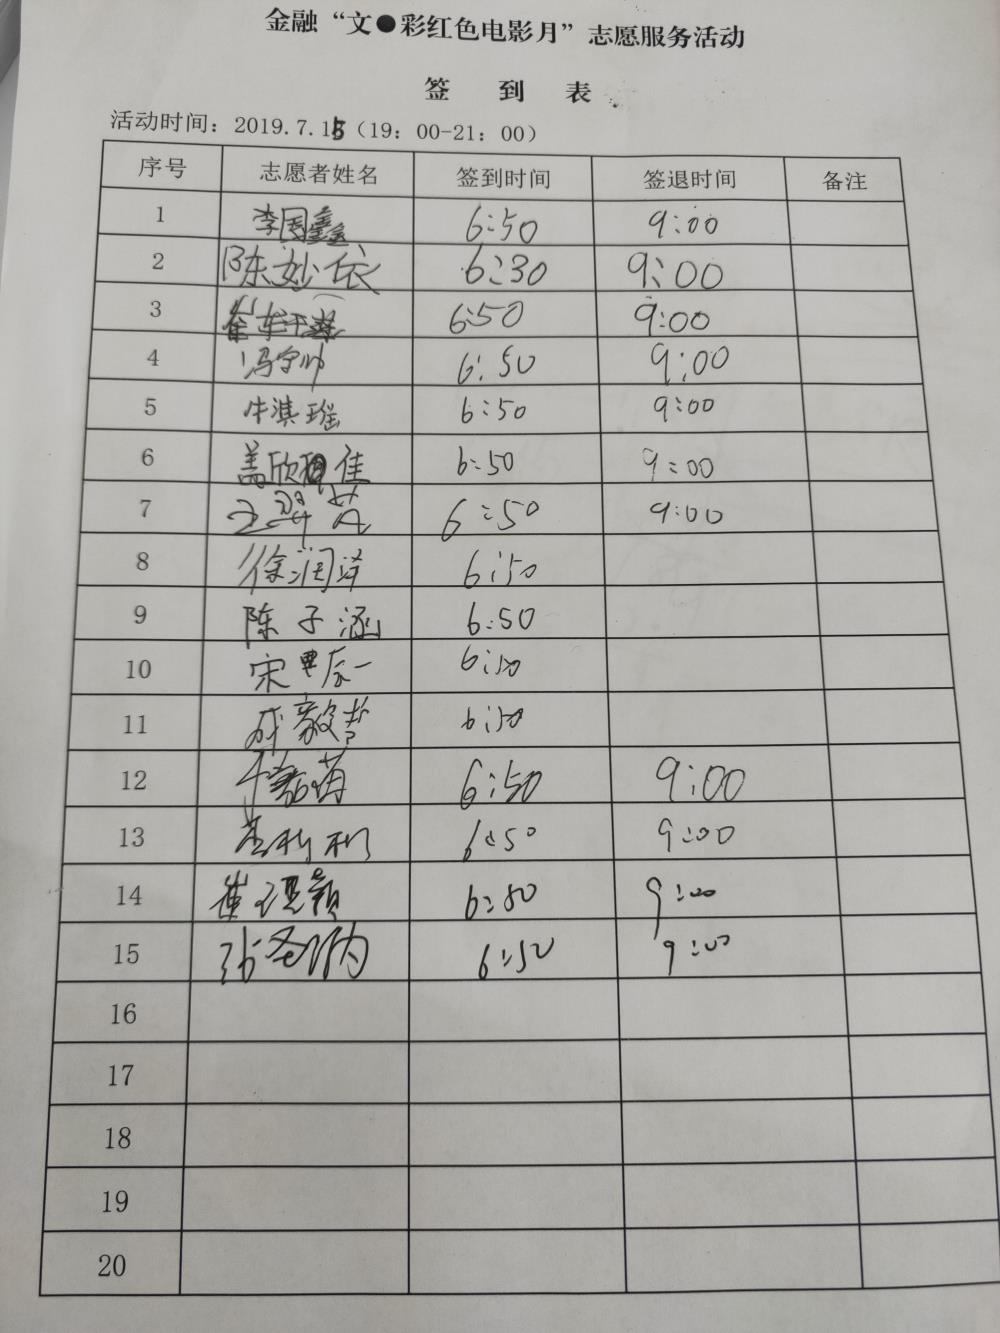 金融“文●彩红色电影月”志愿服务活动
签 到 表
活动时间：2019.7.15（19：00-21：00）
序号 志愿者姓名 签到时间 签退时间 备注
1 李国鑫 6:50 9:00
2 陈妙依 6:30 9:00
3 6:50 9:00
4 冯宇帅 6:50 9:00
5 牛淇瑶 6:50 9:00
6 盖欣 佳 6:50 9:00
7 6:50 9:00
8 徐润泽 6:50
9 陈子涵 6:50
10 宋 辰一 6:50
11 成毅哲 6:50
12 6:50 9:00
13 6:50 9:00
14 崔 颖 6:50 9:00
15 6:50 9:00
16
17
18
19
20